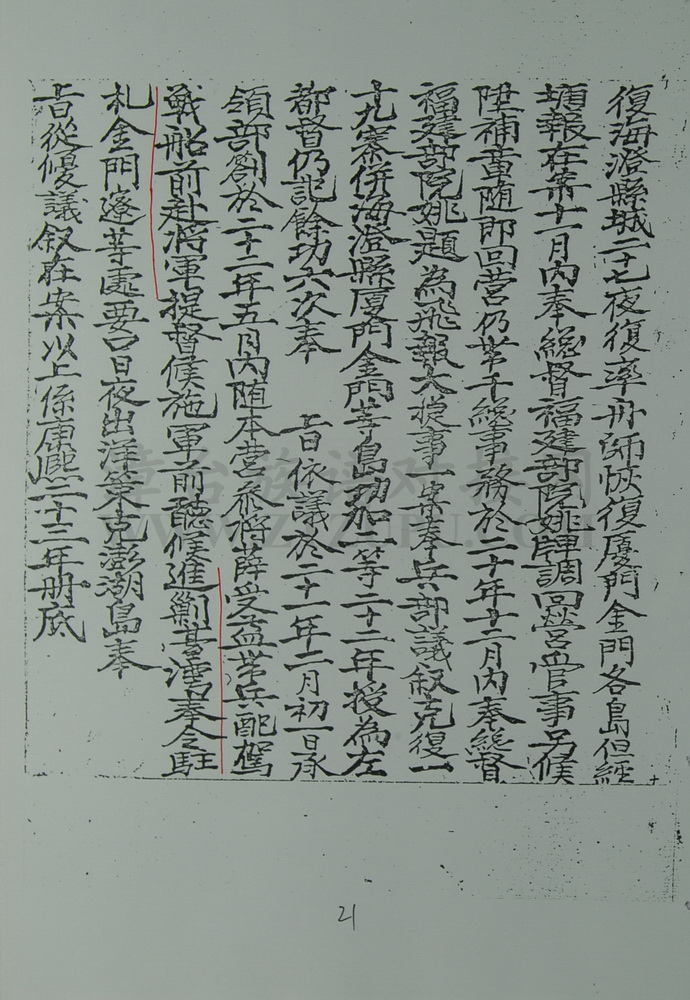 復海澄縣城二十七夜復率舟師恢復廈門金門各島但經
塘報在案十一月內奉總督福建部院姚牌調回營管事另候
陞補章随即回營仍帶千總事務於二十年十二月內奉總督
福建部院姚題為飛報大捷事一案奉兵部議叙克復一
十九寨併海澄縣厦門金門等島功加二等二十二年授為左
都督仍記餘功六次奉 旨依議於二十一年二月初一日承
領部劄於二十二年五月內随本營叅將薛受益帶兵配駕
戰船前赴將軍提督候施軍前聽候進剿臺湾奉令駐
札金門遼等處要口日夜出洋策克澎湖島奉
旨從優議叙在案以上係康熙二十三年册底
21